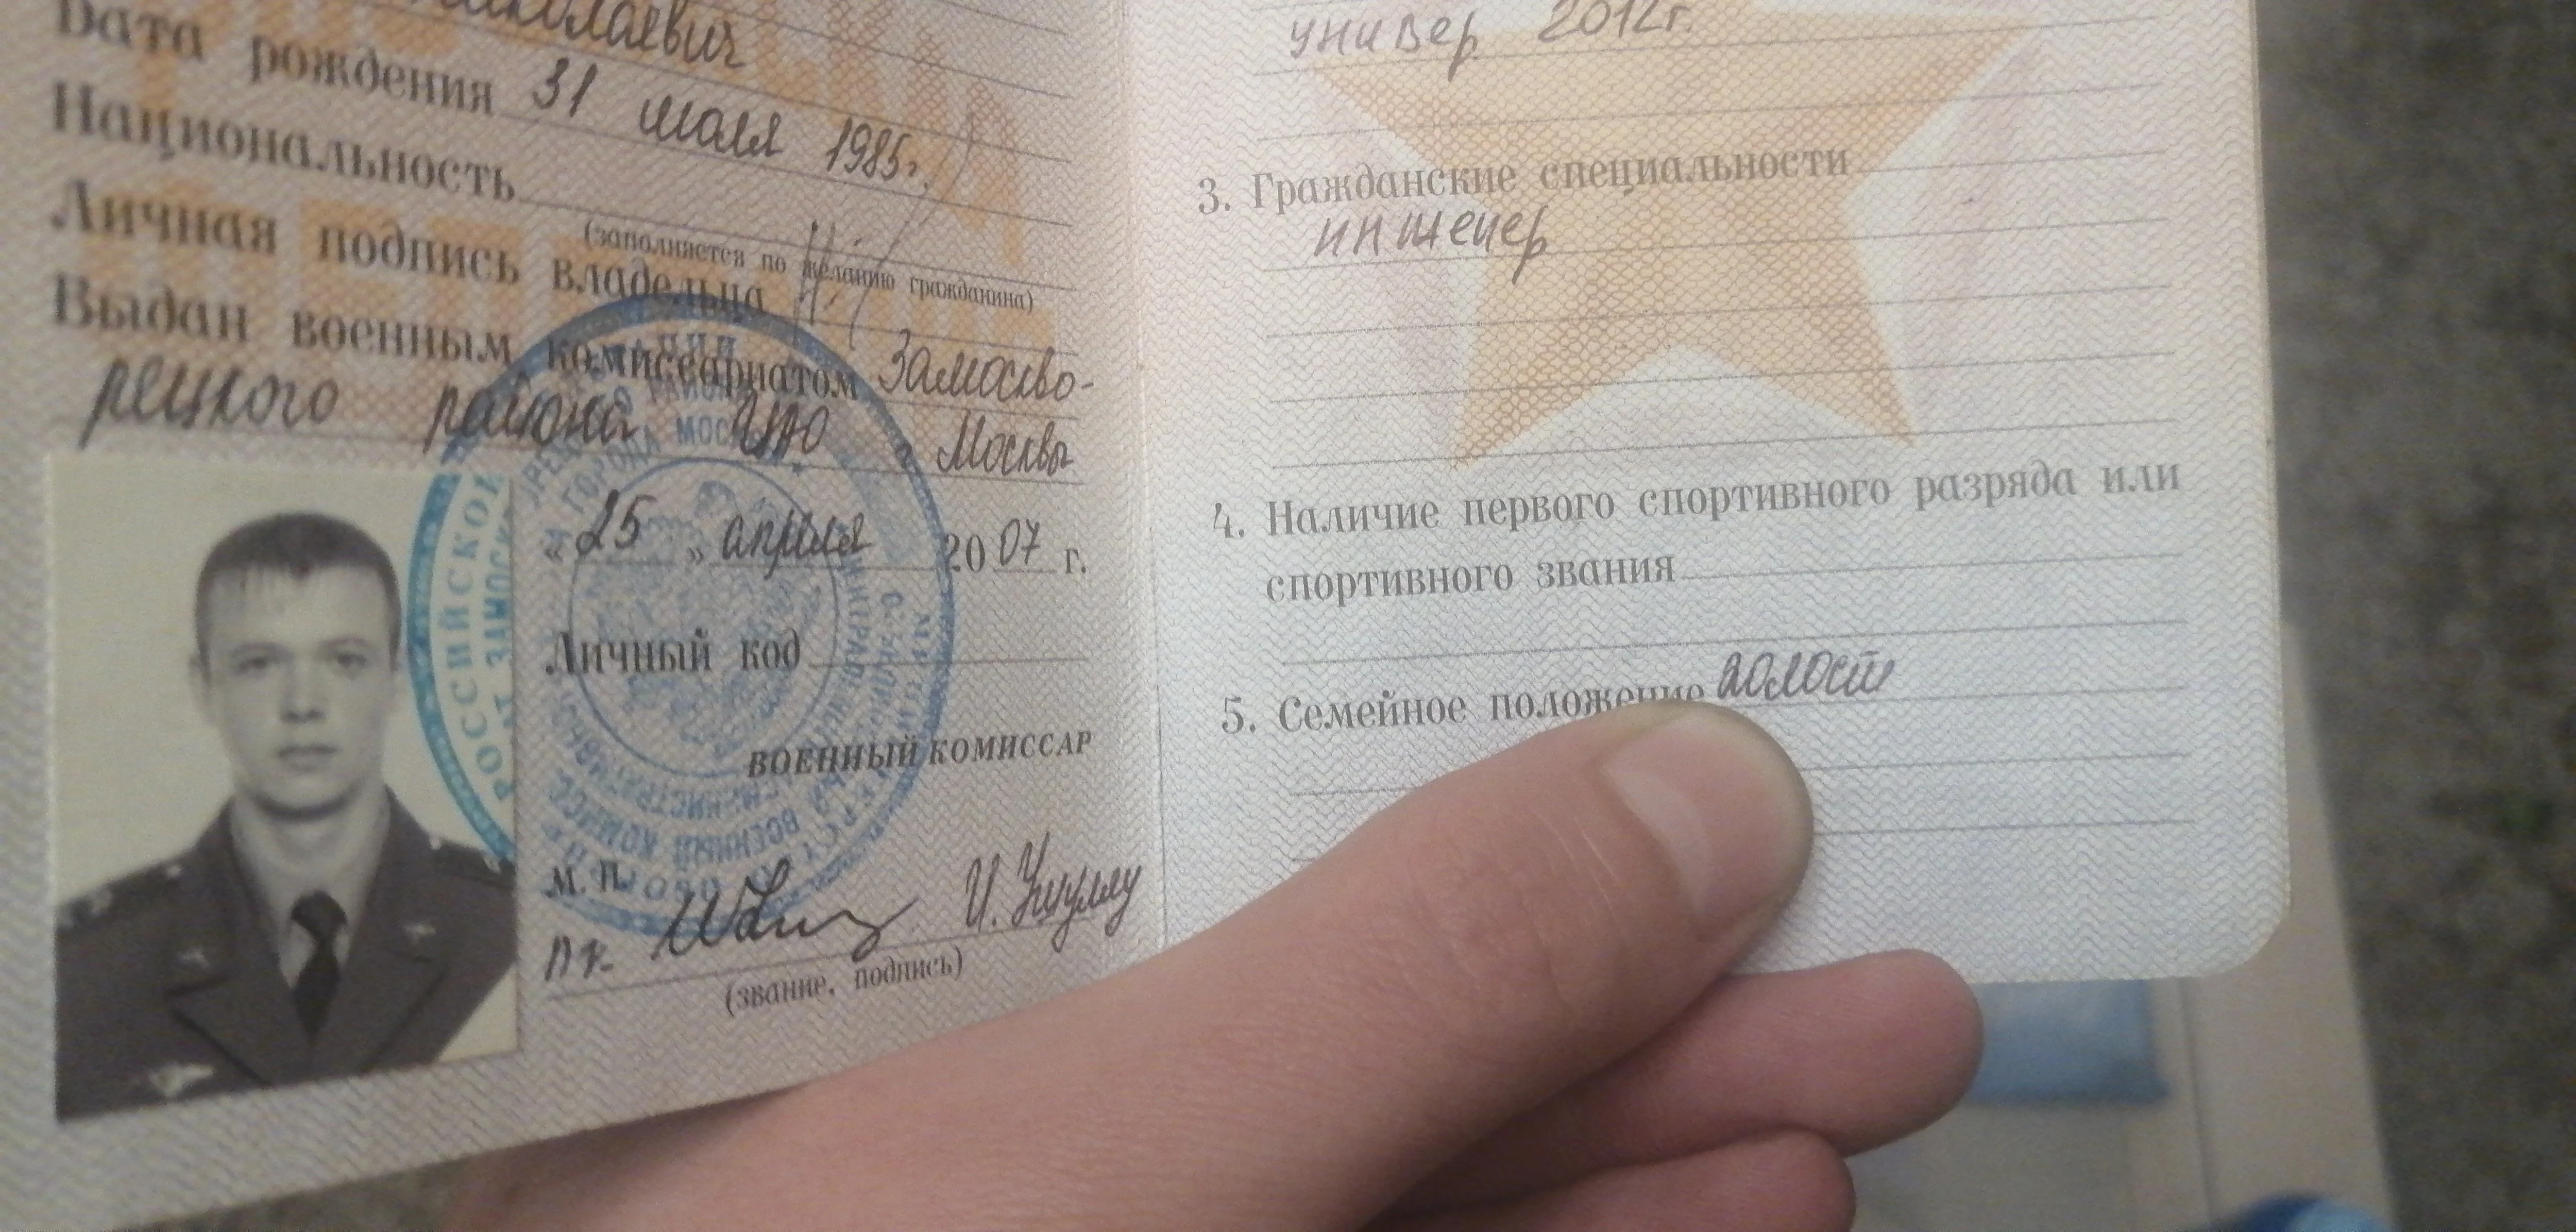 Николаевич
Дата рождения 31 июля 1985г.
Национальность
(заполняется по желанию гражданина)
Личная подпись владельца
Выдан военным комиссариатом Замоскво-
рецкого района ЦАО г Москвы
«25» апреля 2007 г.
Личный код
ВОЕННЫЙ КОМИССАР
М. П.
(звание, подпись)
РОССИЙСКОЙ
универ 2012г.
3. Гражданские специальности
инженер
4. Наличие первого спортивного разряда или
спортивного звания
5. Семейное положение холост